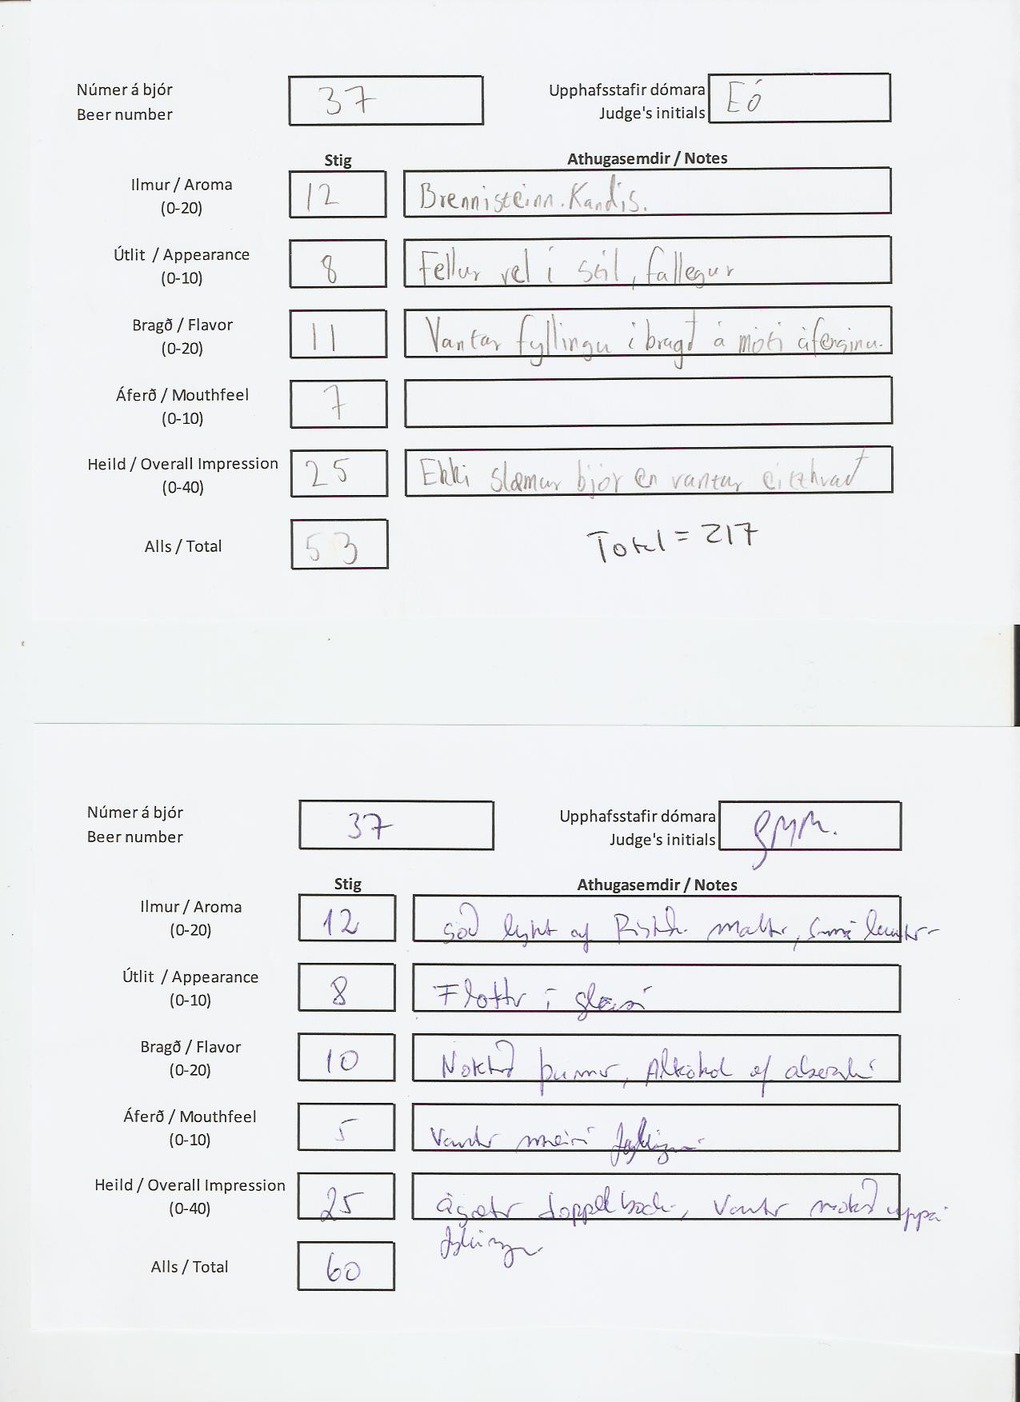 Númer á bjór 37 Upphafsstafir dómara EÓ
Beer number Judge's initials
Stig Athugasemdir / Notes
Ilmur / Aroma 12 Brennisteinn. Kandis.
(0-20)
Útlit / Appearance 8 Fellur vel í stíl, fallegur
(0-10)
Bragð / Flavor 11 Vantar fyllingu í bragð á móti áfenginu.
(0-20)
Áferð / Mouthfeel 7
(0-10)
Heild / Overall Impression 25 Ekki slæmur bjór en vantar eitthvað
(0-40)
Alls / Total 53 Total = 217
Númer á bjór 37 Upphafsstafir dómara
Beer number Judge's initials
Stig Athugasemdir / Notes
Ilmur / Aroma 12 góð lykt af malti, smá
(0-20)
Útlit / Appearance 8 Flottur í glasi
(0-10)
Bragð / Flavor 10 Nokkuð þunnur, Alkóhol of
(0-20)
Áferð / Mouthfeel 5 Vantar meiri fyllingu
(0-10)
Heild / Overall Impression 25 ágætur doppelbock, Vantar nokkuð uppá
(0-40) fyllingu
Alls / Total 60